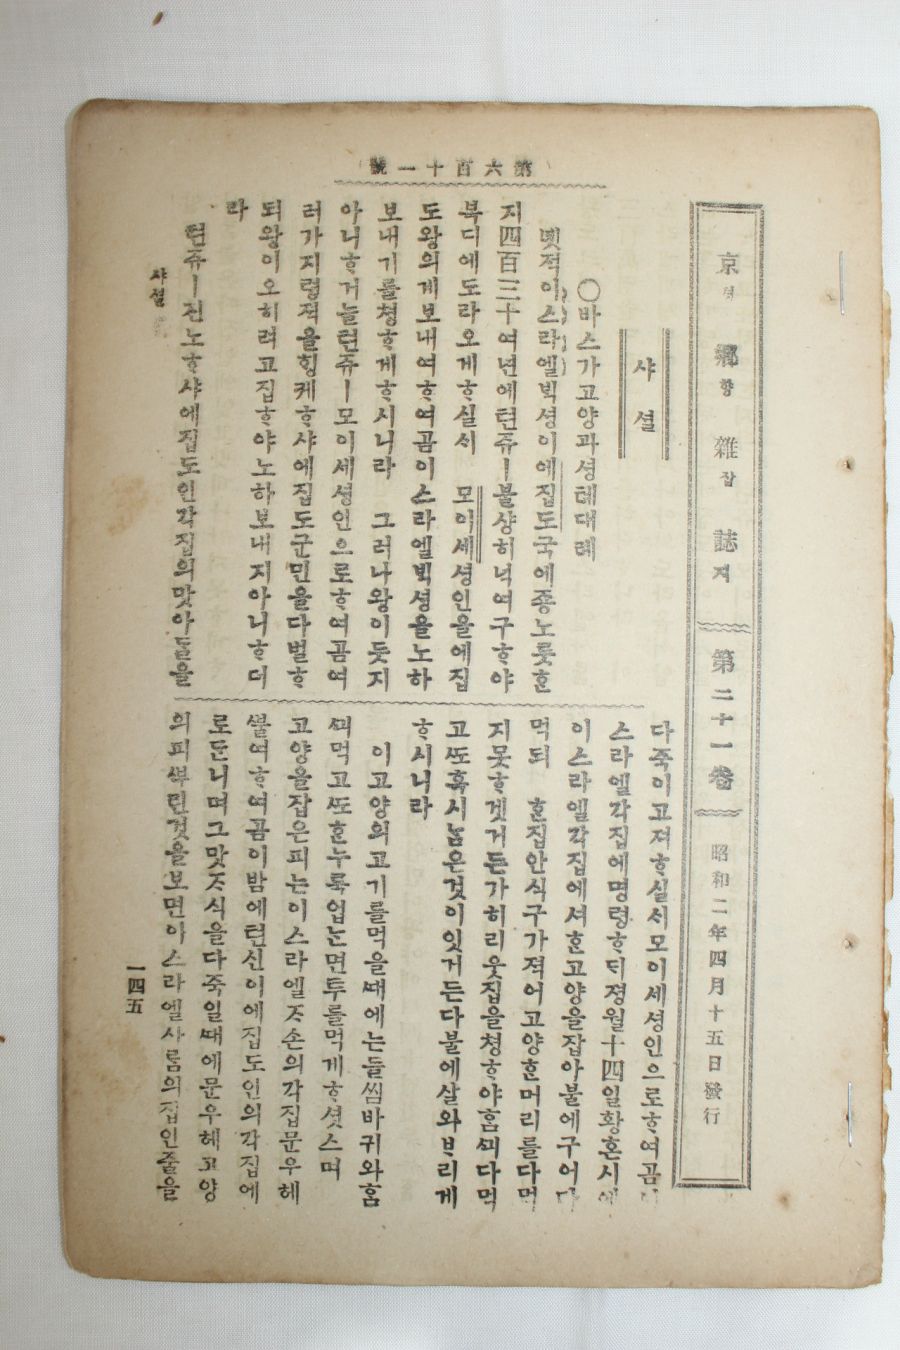 第六百十一號
京경鄕향雜잡誌지 第二十一卷 昭和二年四月十五日發行
샤셜
○바스가고양과셩톄대례
녯적이스라엘ᄇᆡᆨ셩이에집도국에죵노릇ᄒᆞᆫ
지四百三十여년에텬쥬ㅣ불샹히녁여구ᄒᆞ야
복디에도라오게ᄒᆞ실ᄉᆡ 모이세셩인을에집
도왕의게보내여ᄒᆞ여곰이스라엘ᄇᆡᆨ셩을노하
보내기를쳥ᄒᆞ게ᄒᆞ시니라 그러나왕이듯지
아니ᄒᆞ거늘텬쥬ㅣ모이세셩인으로ᄒᆞ여곰여
러가지령젹을ᄒᆡᆼ케ᄒᆞ샤에집도군민을다벌ᄒᆞ
되왕이오히려고집ᄒᆞ야노하보내지아니ᄒᆞ더
라
텬쥬ㅣ진노ᄒᆞ샤에집도인각집의맛아ᄃᆞᆯ을
다죽이고져ᄒᆞ실ᄉᆡ모이세셩인으로ᄒᆞ여곰이
스라엘각집에명령ᄒᆞᄃᆡ졍월十四일황혼시에
이스라엘각집에셔ᄒᆞᆫ고양을잡아불에구어다
먹되 ᄒᆞᆫ집안식구가적어고양ᄒᆞᆫ머리를다먹
지못ᄒᆞ겟거든가히리웃집을쳥ᄒᆞ야ᄒᆞᆷᄭᅴ다먹
고ᄯᅩ혹시ᄂᆞᆷ은것이잇거든다불에살와ᄇᆞ리게
ᄒᆞ시니라
이고양의고기를먹을ᄯᅢ에는들씸바귀와ᄒᆞᆷ
ᄭᅴ먹고ᄯᅩᄒᆞᆫ누룩업ᄂᆞᆫ면투를먹게ᄒᆞ셧스며
고양을잡은피는이스라엘ᄌᆞ손의각집문우헤
ᄲᅮᆯ여ᄒᆞ여곰이밤에텬신이에집도인의각집에
로ᄃᆞᆫ니며그맛ᄌᆞ식을다죽일ᄯᅢ에문우헤고양
의피ᄲᅮ린것을보면이스라엘사ᄅᆞᆷ의집인줄을
샤셜
一四五